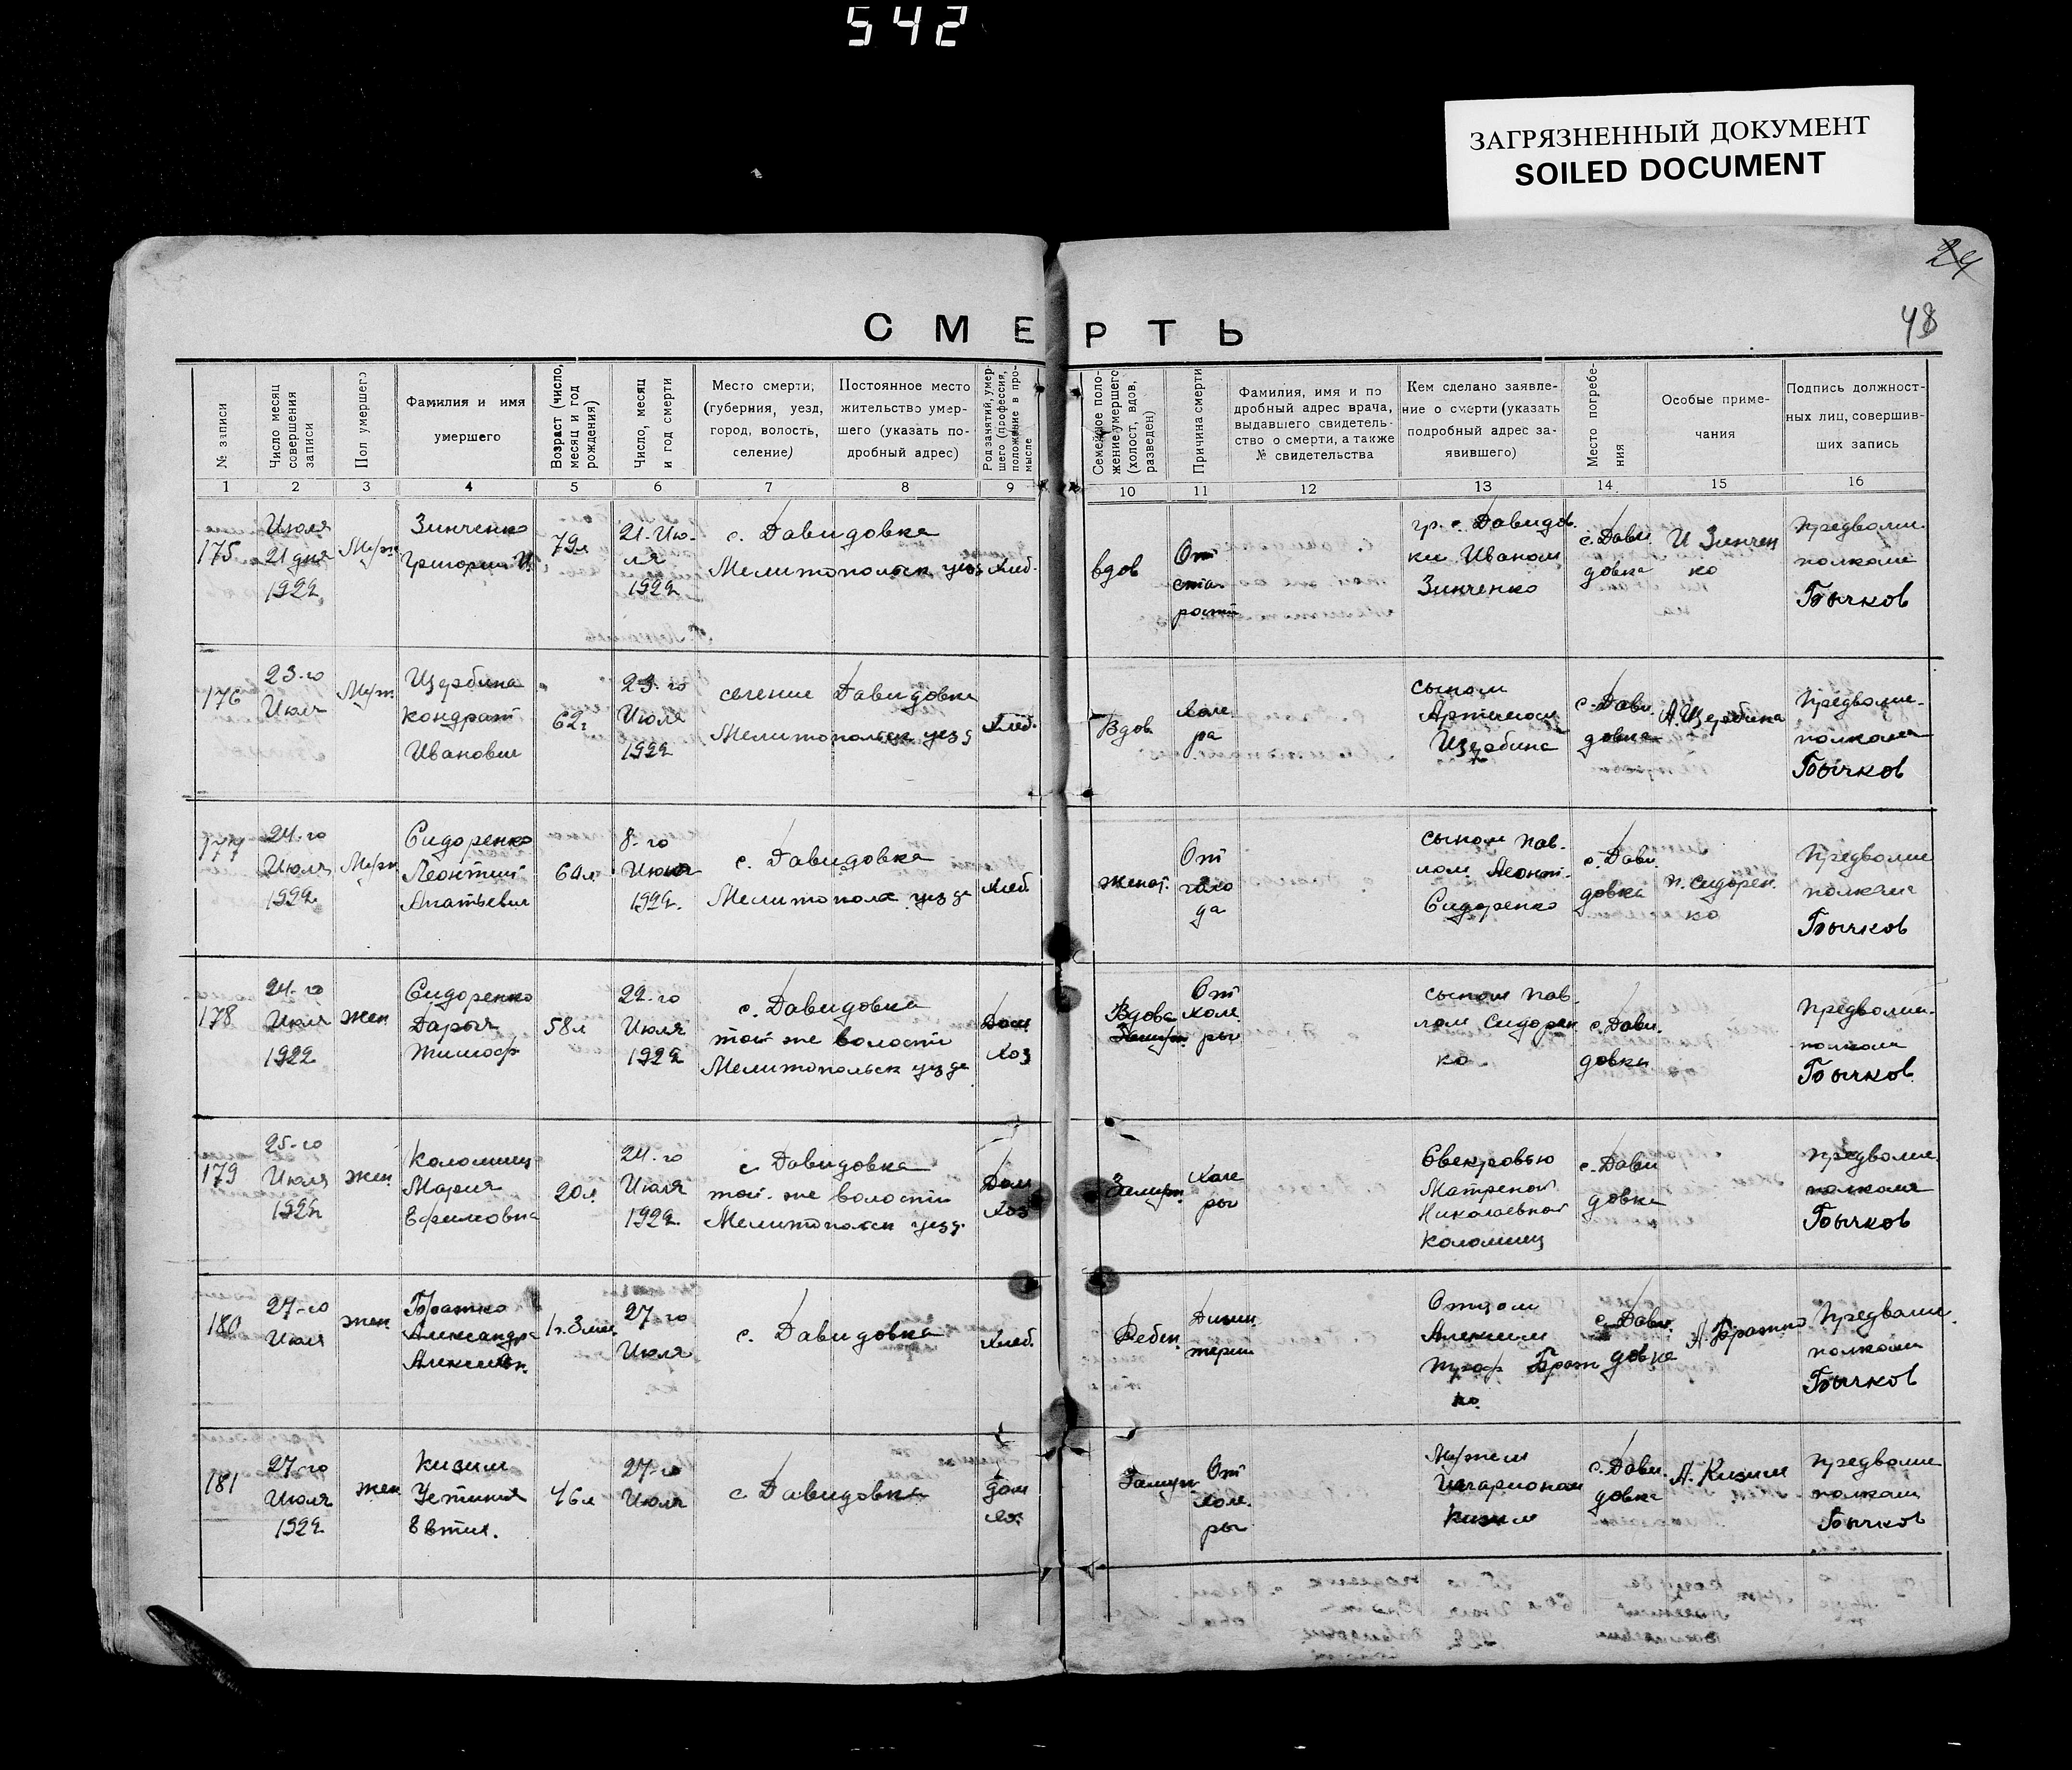 542
ЗАГРЯЗНЕННЫЙ ДОКУМЕНТ
SOILED DOCUMENT
24
48
СМЕРТЬ
№ записи
Число месяц
совершения
записи
Пол умершего
Фамилия и имя
умершего
Возраст (число,
месяц и год
рождения)
Число, месяц
и год смерти
Место смерти,
(губерния, уезд,
город, волость,
селение)
Постоянное место
жительство умер-
шего (указать по-
дробный адрес)
Род занятий, умер-
шего (профессия,
положение в про-
мысле
Семейное поло-
жение умершего
(холост, вдов,
разведен)
Причина смерти
Фамилия, имя и по
дробный адрес врача,
выдавшего свидетель-
ство о смерти, а также
№ свидетельства
Кем сделано заявле-
ние о смерти (указать
подробный адрес за-
явившего)
Место погребе-
ния
Особые приме-
чания
Подпись должност-
ных лиц, совершив-
ших запись
1 2 3 4 5 6 7 8 9 10 11 12 13 14 15 16
175
Июля
21 дня
1922
Муж
Зинченко
Григорий И.
79л
21-Ию-
ля
1922
с. Давидовка
Мелитопольск уезд
Хлеб.
вдов
От
ста-
рости
гр. с. Давидов.
ки Иваном
Зинченко
с. Дави
довка
И Зинчен
ко
Предволис
полкома
Бычков
176
23-го
Июля
Муж
Щербина
Кондрат
Иванович
62г
23-го
Июля
1922
селение Давидовка
Мелитопольск уезд
Хлеб.
Вдов
Холе
ра
сыном
Щербина
с. Дави
довка
А. Щербина
Предволис-
полкома
Бычков
177
24-го
Июля
1922
Муж
Сидоренко
Леонтий
Ипатьевич
64л
8-го
1922.
с. Давидовка
Мелитопола уезда
Хлеб
женат.
От
голо
да
сыном Пав-
лом Леонт.
Сидоренко
с. Дави
довка
П. Сидорен.
ко
Предволис
полкома
Бычков
178
24-го
Июля
1922
жен
Сидоренко
Дарья
Тимоф
58л
22-го
Июля
1922
с. Давидовка
той же волости
Мелитопольск уезда
Дом
Хоз
Вдова
Замуж
От
холе
ры
сыном Пав-
лом Сидорен
ко
с. Дави.
довка
Предволис.
полкома
Бычков
179
25-го
Июля
1922
жен
Коломиец
Мария
Ефимовна
20л
24-го
Июля
1922
с Давидовка
той же волости
Мелитопольск уезд.
Дом
Хоз
Замуж.
Холе
ры
Свекровью
Матреной
Николаевной
Коломиец
с. Дави
довка
Предволис.
полкома
Бычков
180
27-го
Июля
жен
Братко
Александра
Алексеевн.
1г. 3 мес
27-го
Июля
с. Давидовка
Хлеб.
Ребен.
Дизен
терии
Отцом
Алексеем
Троф Брат
ко
с. Дави.
довка
А. Братко
Предволис.
полкома
Бычков
181
27-го
Июля
1922
жен
Кизим
Устиния
Евтих.
46л
27-го
Июля
с Давидовка
дом
хоз
Замуж
От
холе.
ры
Мужем
Кизим
с. Дави.
довка
А. Кизим
Предволис
полкома
Бычков